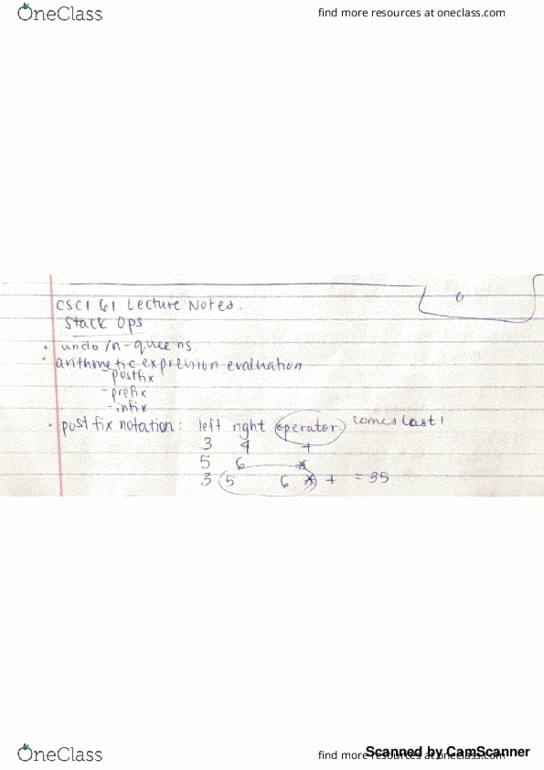 OneClass
find more resources at oneclass.com
CSCI 61 Lecture Notes.
Stack Ops
• undo/n-queens
• arithmetic expression evaluation
- postfix
- prefix
- infix
• postfix notation: left right operator comes last!
3 4 +
5 6 *
3 5 6 * + = 35
OneClass
find more resources at oneclass.com
Scanned by CamScanner